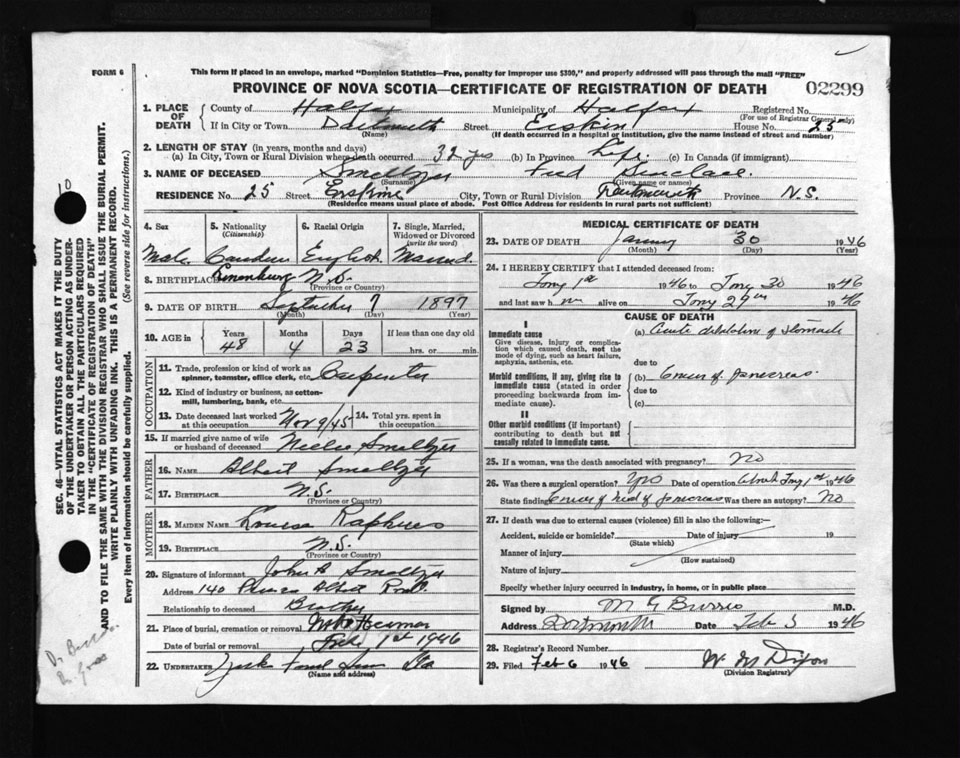 FORM 6
This form if placed in an envelope, marked "Dominion Statistics—Free, penalty for improper use $300," and properly addressed will pass through the mail "FREE"
PROVINCE OF NOVA SCOTIA—CERTIFICATE OF REGISTRATION OF DEATH
02299
1. PLACE OF DEATH
County of Halifax Municipality of Halifax Registered No.
(Name) (For use of Registrar General only)
If in City or Town Dartmouth Street Erskin House No. 25
(If death occurred in a hospital or institution, give the name instead of street and number)
2. LENGTH OF STAY (in years, months and days)
(a) In City, Town or Rural Division where death occurred 32 yrs (b) In Province Life. (c) In Canada (if immigrant)
3. NAME OF DECEASED Smeltzer Fred Sinclair.
(Surname) (Given name or names)
RESIDENCE No. 25 Street Erskine City, Town or Rural Division Dartmouth Province N.S.
(Residence means usual place of abode. Post Office Address for residents in rural parts not sufficient)
4. Sex
5. Nationality
(Citizenship)
6. Racial Origin
7. Single, Married, Widowed or Divorced
(write the word)
Male Canadian English Married.
8. BIRTHPLACE Lunenburg N.S.
(Province or Country)
9. DATE OF BIRTH September 7 1897
(Month) (Day) (Year)
10. AGE in
Years Months Days If less than one day old
48 4 23 hrs. or min.
OCCUPATION
11. Trade, profession or kind of work as spinner, teamster, office clerk, etc. Carpenter
12. Kind of industry or business, as cotton-mill, lumbering, bank, etc.
13. Date deceased last worked at this occupation Nov 9/45
14. Total yrs. spent in this occupation
15. If married give name of wife or husband of deceased Smeltzer
FATHER
16. NAME Albert Smeltzer
17. BIRTHPLACE N.S.
(Province or Country)
MOTHER
18. MAIDEN NAME Louisa
19. BIRTHPLACE N.S.
(Province or Country)
20. Signature of informant John B Smeltzer
Address 140 Prince Albert Road.
Relationship to deceased Brother
21. Place of burial, cremation or removal
Date of burial or removal Feb 1st 1946
22. UNDERTAKER
(Name and address)
MEDICAL CERTIFICATE OF DEATH
23. DATE OF DEATH January 30 1946
(Month) (Day) (Year)
24. I HEREBY CERTIFY that I attended deceased from
Jany 1st 1946 to Jany 30 1946
and last saw h im alive on Jany 29th 1946
CAUSE OF DEATH
I
Immediate cause
Give disease, injury or complication which caused death, not the mode of dying, such as heart failure, asphyxia, asthenia, etc.
(a) Acute dilatation of stomach
due to
Morbid conditions, if any, giving rise to immediate cause (stated in order proceeding backwards from immediate cause).
(b) Cancer of pancreas.
due to
(c)
II
Other morbid conditions (if important) contributing to death but not causally related to immediate cause.
25. If a woman, was the death associated with pregnancy? No
26. Was there a surgical operation? Yes Date of operation about Jany 1st 1946
State finding Cancer of head of pancreas Was there an autopsy? No
27. If death was due to external causes (violence) fill in also the following:—
Accident, suicide or homicide? Date of injury 19
(State which)
Manner of injury
(How sustained)
Nature of injury
Specify whether injury occurred in industry, in home, or in public place
Signed by M G Burris M.D.
Address Dartmouth Date Feb 3 1946
28. Registrar's Record Number
29. Filed Feb 6 1946 W. M Dixon
(Division Registrar)
SEC. 46—VITAL STATISTICS ACT MAKES IT THE DUTY OF THE UNDERTAKER OR PERSON ACTING AS UNDERTAKER TO OBTAIN ALL THE PARTICULARS REQUIRED IN THE "CERTIFICATE OF REGISTRATION OF DEATH" AND TO FILE THE SAME WITH THE DIVISION REGISTRAR WHO SHALL ISSUE THE BURIAL PERMIT.
WRITE PLAINLY WITH UNFADING INK. THIS IS A PERMANENT RECORD.
Every item of information should be carefully supplied. (See reverse side for instructions.)
10